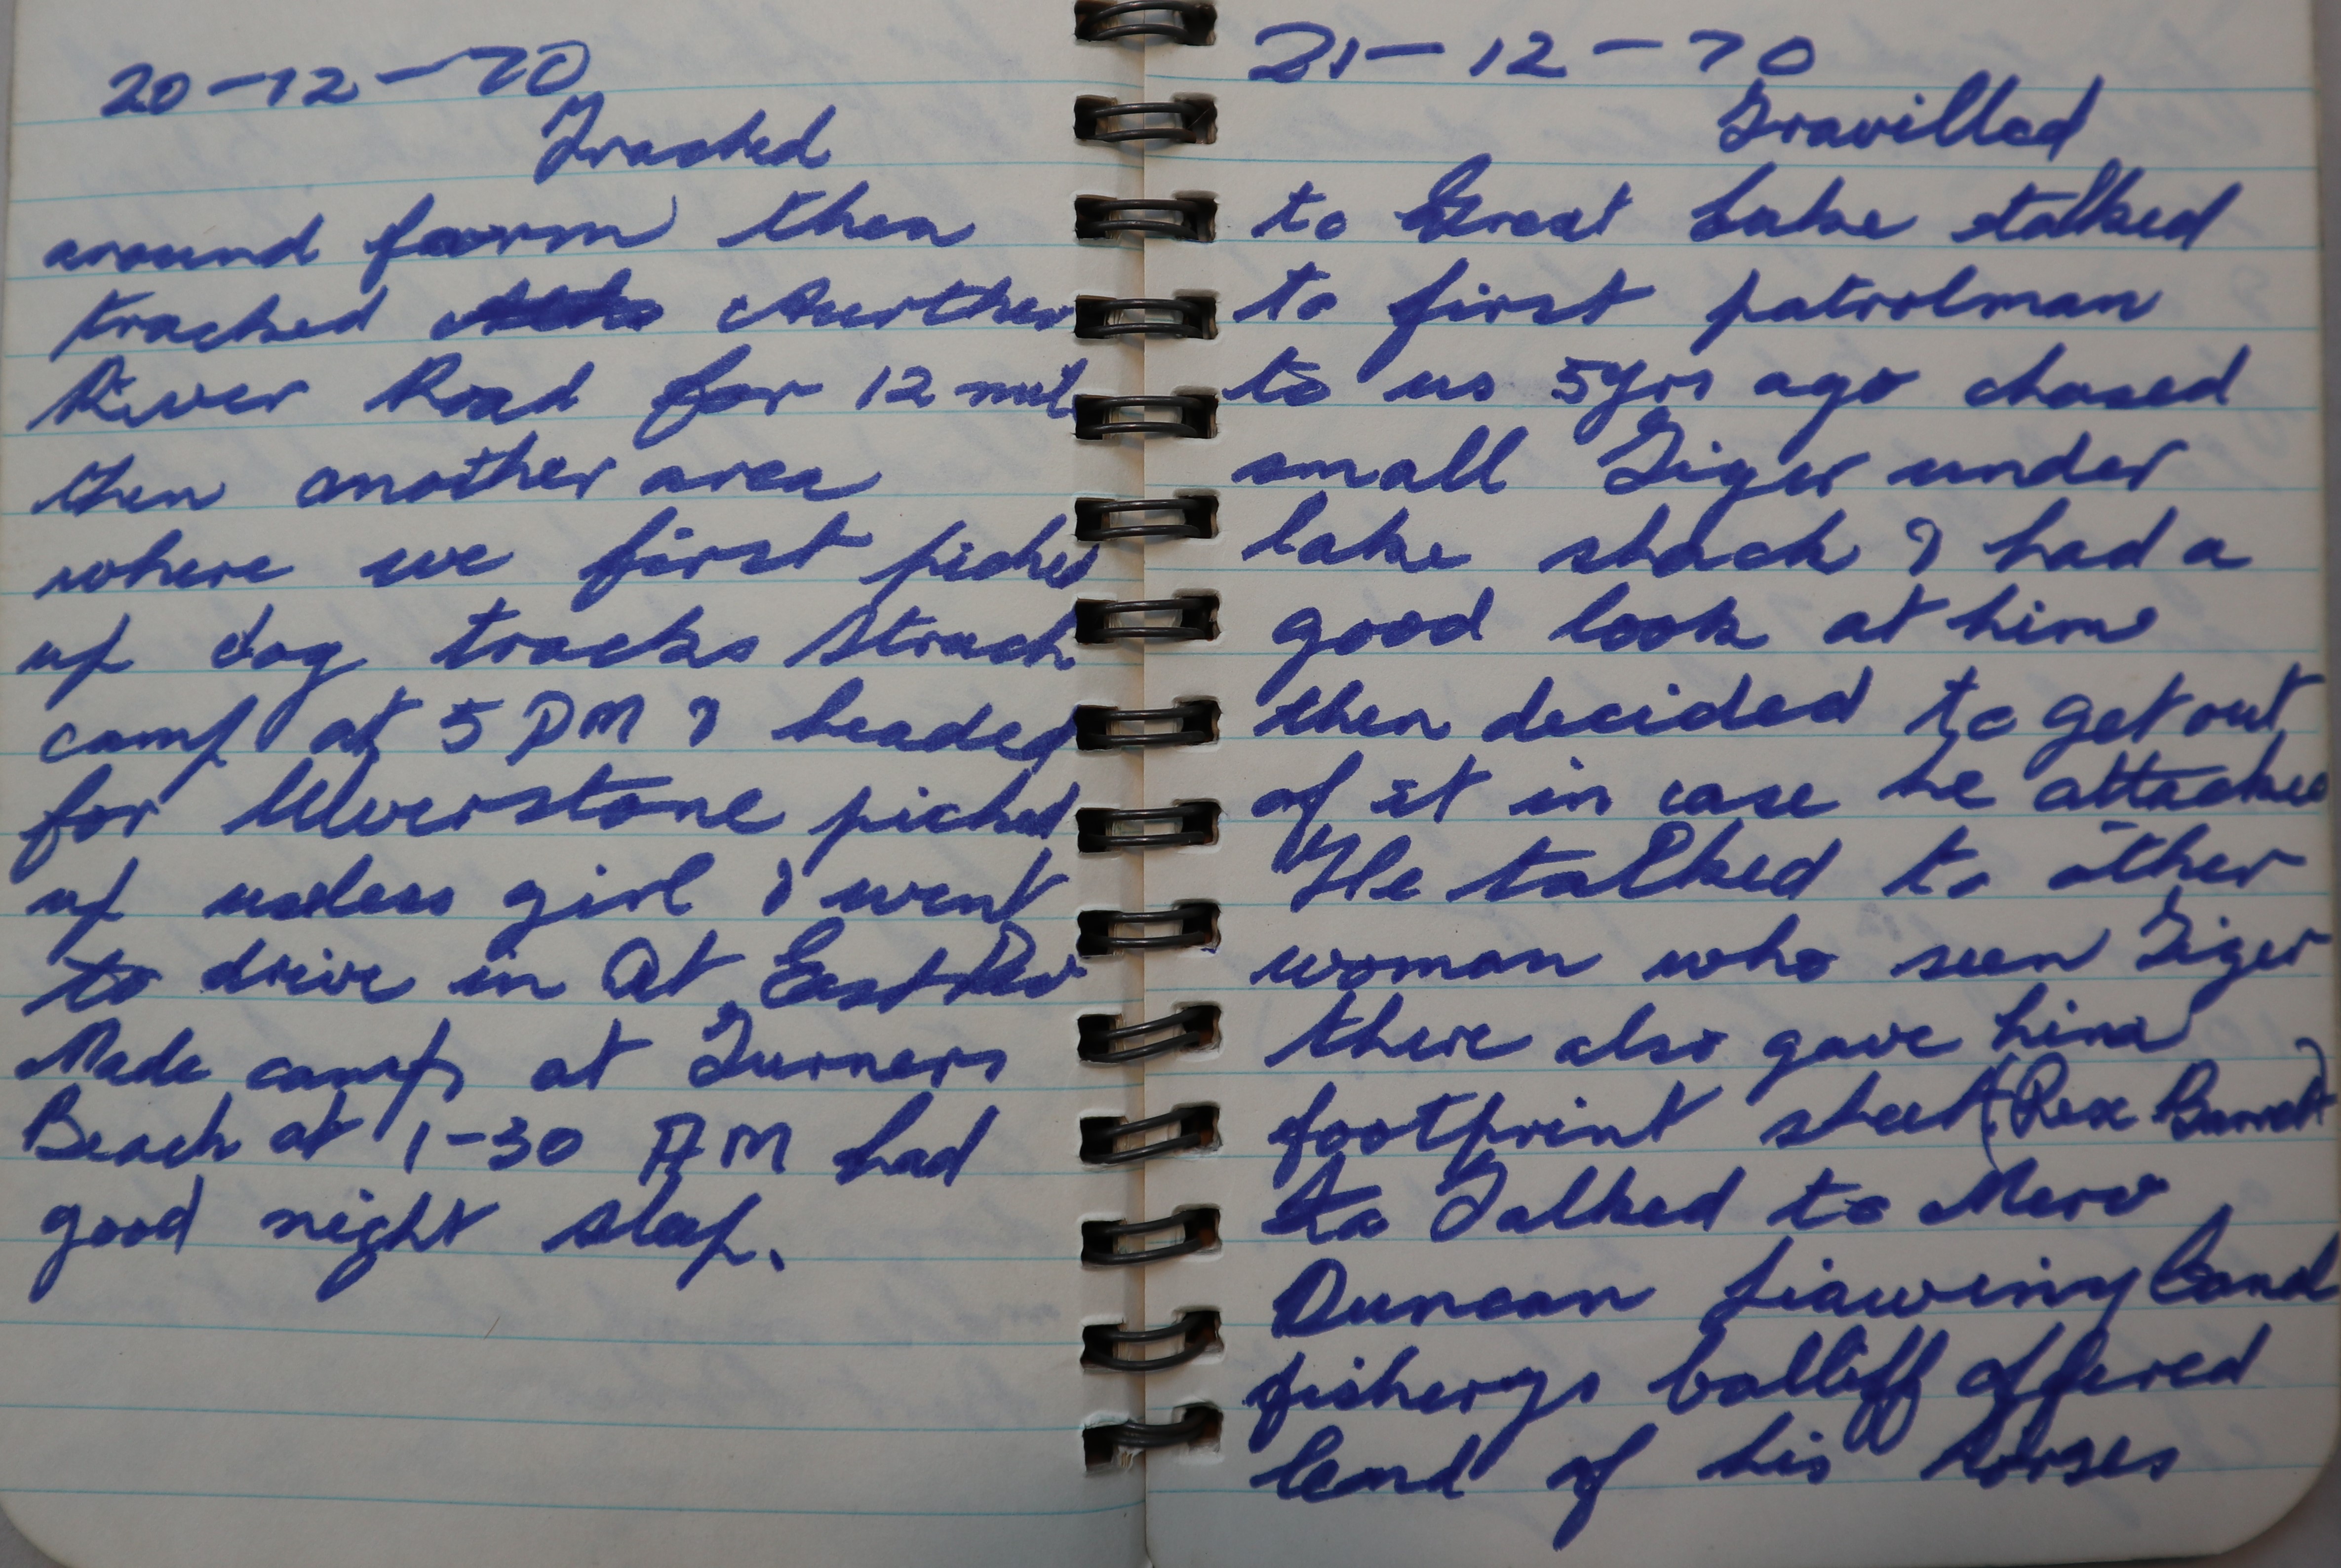 20-12-70
Tracked
around farm then
tracked Aurther
River Road for 12 mil
then another area
where we first picked
up dog tracks Strach
camp at 5 PM & headed
for Ulverstone picked
up useless girl & went
to drive in At East Dev
Made camp at Turners
Beach at 1-30 AM had
good night sleep.
21-12-70
Travilled
to Great Lake stalked
to first patrolman
to us 5yrs ago chased
small Tiger under
lake shack & had a
good look at him
then decided to get out
of it in case he attacked
He talked to other
woman who seen Tiger
there also gave him
footprint sheet (Rex Barrett)
to Talked to Merv
Duncan Liawiny Cond
fisherys bailiff offered
lend of his horses